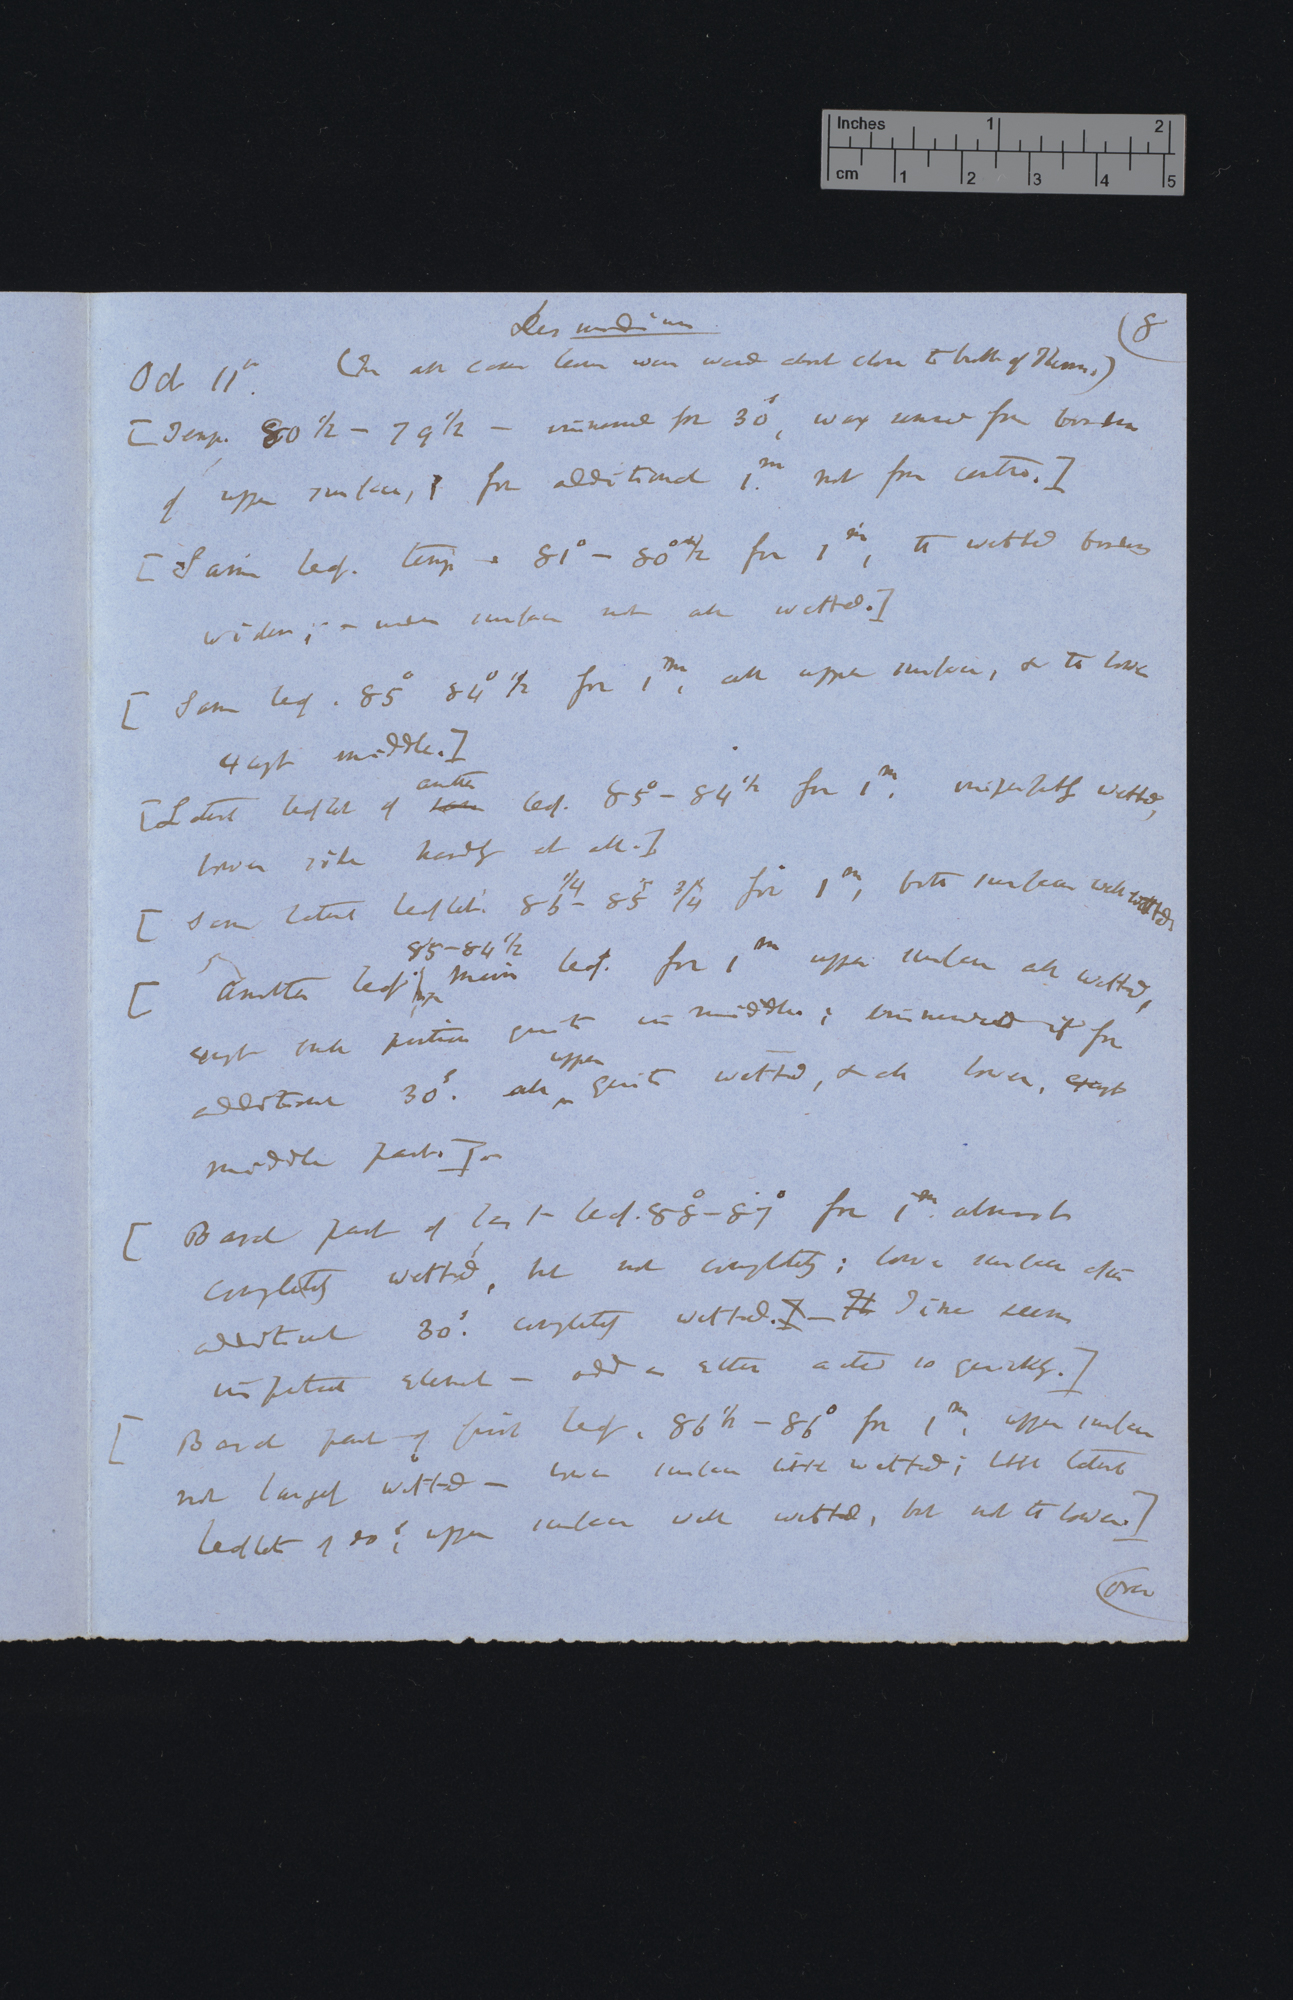 Inches 1 2
cm 1 2 3 4 5
Desmodium (8
Oct 11th. (In all cases leaves were waved about close to bulb of Therm.)
[Temp. 80 1/2 – 79 1/2 – immersed for 30s, wax removed from borders
of upper surface, & for additional 1m. not from centre.]
[Same leaf. temp 81° – 80° 1/2 for 1m, the wetted borders
wider, – under surface not all wetted.]
[Same leaf. 85° 84° 1/2 for 1m, all upper surface, & the lower
except middle.]
another
[Lateral leaflet of same leaf. 85° – 84 1/2 for 1m. imperfectly wetted,
lower side hardly at all.]
[Same lateral leaflet. 86 1/4 – 85 3/4 for 1m, both surfaces well wetted
85 – 84 1/2
[Another leaf main leaf. for 1m upper surface all wetted,
except small portion quite in middle; immersed if for
upper
additional 30s. all quite wetted, & all lower, except
middle part.] –
[Basal part of last leaf. 88° – 87° for 1m. almost
completely wetted, but not completely; lower surface after
additional 30s. completely wetted.] – Time seems
important element – odd as ether acted so quickly.]
[Basal part of first leaf. 86 1/2 – 86° for 1m, upper surface
not largely wetted – lower surface little wetted; little lateral
leaflet of do; upper surface well wetted, but not the lower.]
(over